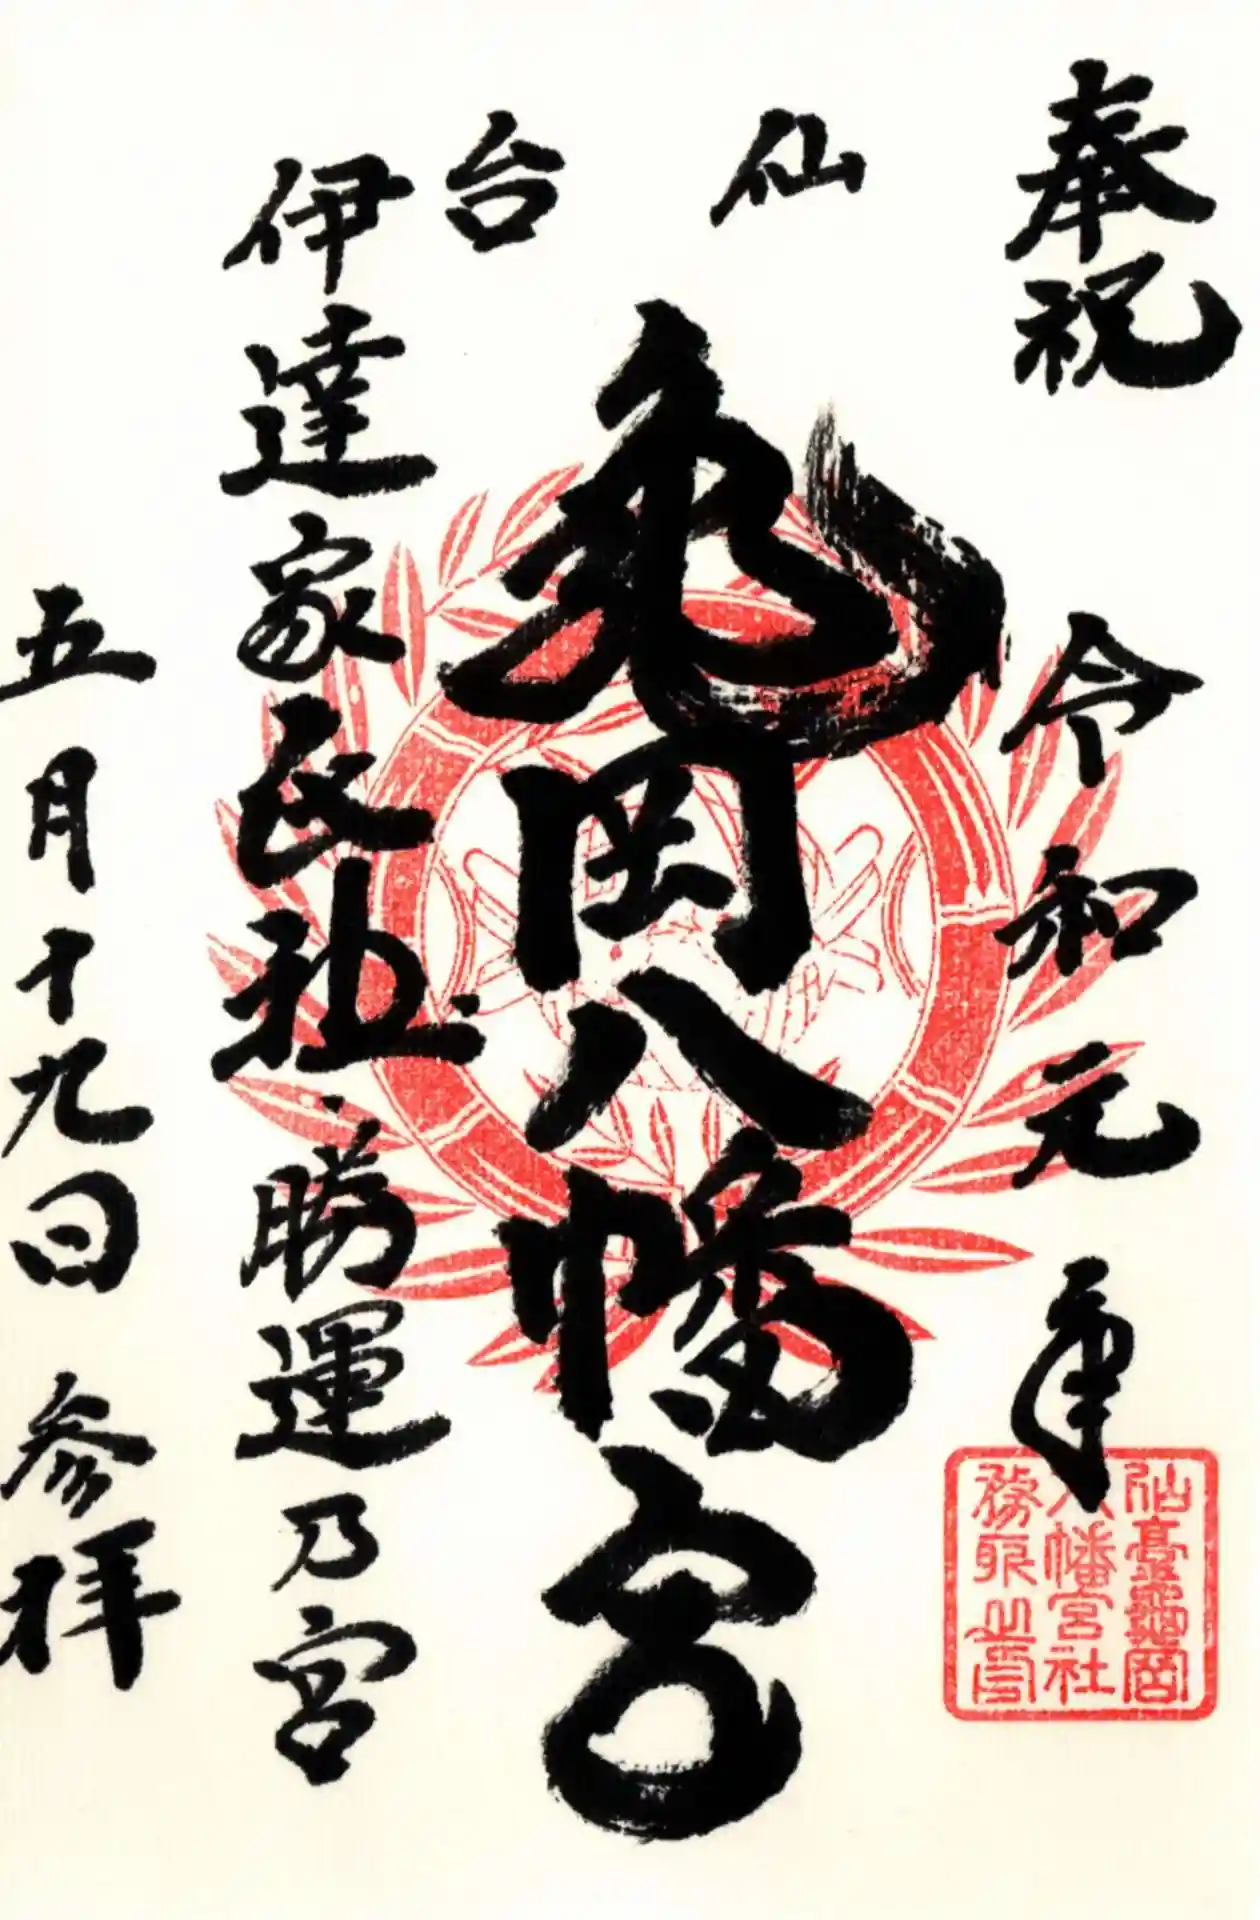 奉祝 令和元年
仙台
亀岡八幡宮
伊達家氏神・勝運乃宮
五月十九日 参拝
仙臺龜岡
八幡宮社
務所之印